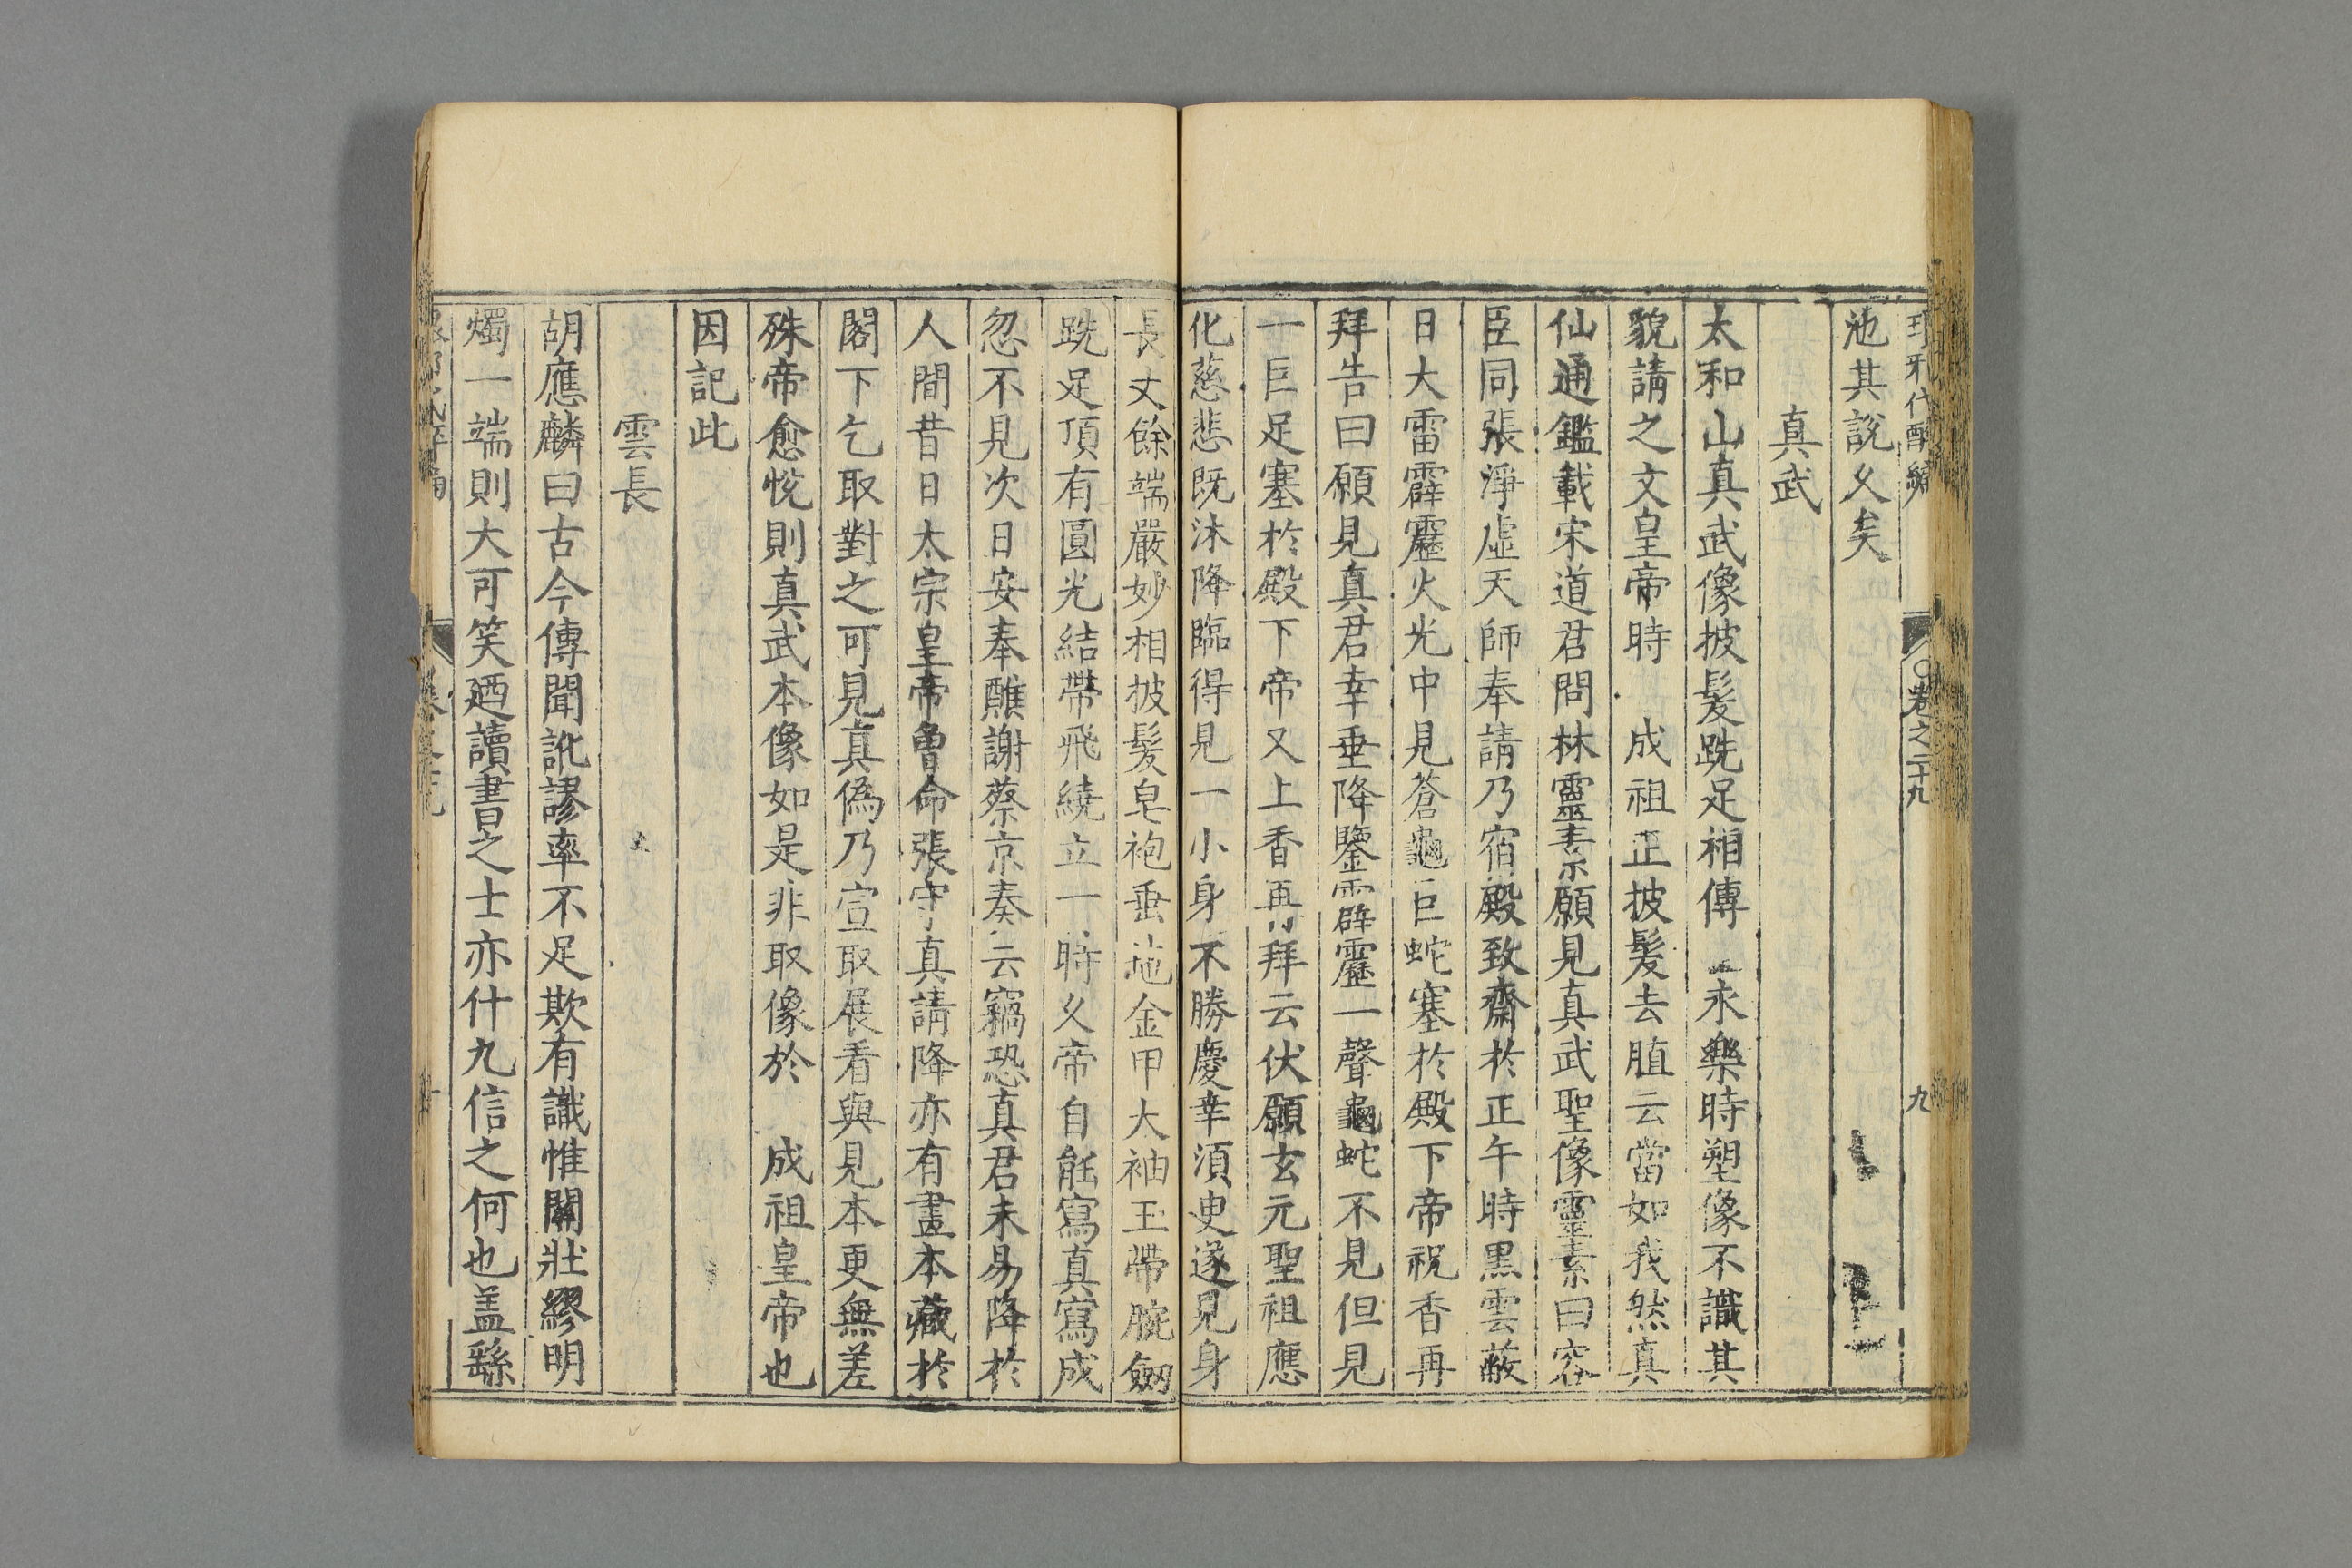 代醉編 卷之二十九 九
池其說久矣
真武
太和山真武像披髮跣足相傳 永樂時塑像不識其
貌請之文皇帝時 成祖正披髮去脜云當如我然真
仙通鑑載宋道君問林靈素願見真武聖像靈素曰容
臣同張淨虛天師奉請乃宿殿致齋於正午時黑雲蔽
日大雷霹靂火光中見蒼龜巨蛇塞於殿下帝祝香再
拜告曰願見真君幸垂降鑒霹靂一聲龜蛇不見但見
一巨足塞於殿下帝又上香再拜云伏願玄元聖祖應
化慈悲既沐降臨得見一小身不勝慶幸須臾遂見身
長丈餘端嚴妙相披髮皂袍垂地金甲大袖玉帶腕劔
跣足頂有圓光結帶飛繞立一時久帝自能寫真寫成
忽不見次日安奉醮謝蔡京奏云竊恐真君未易降於
人間昔日太宗皇帝曾命張守真請降亦有畫本藏於
閣下乞取對之可見真偽乃宣取展看與見本更無差
殊帝愈悅則真武本像如是非取像於 成祖皇帝也
因記此
雲長
胡應麟曰古今傳聞訛謬率不足欺有識惟關壯繆明
燭一端則大可笑廼讀書之士亦什九信之何也盖繇